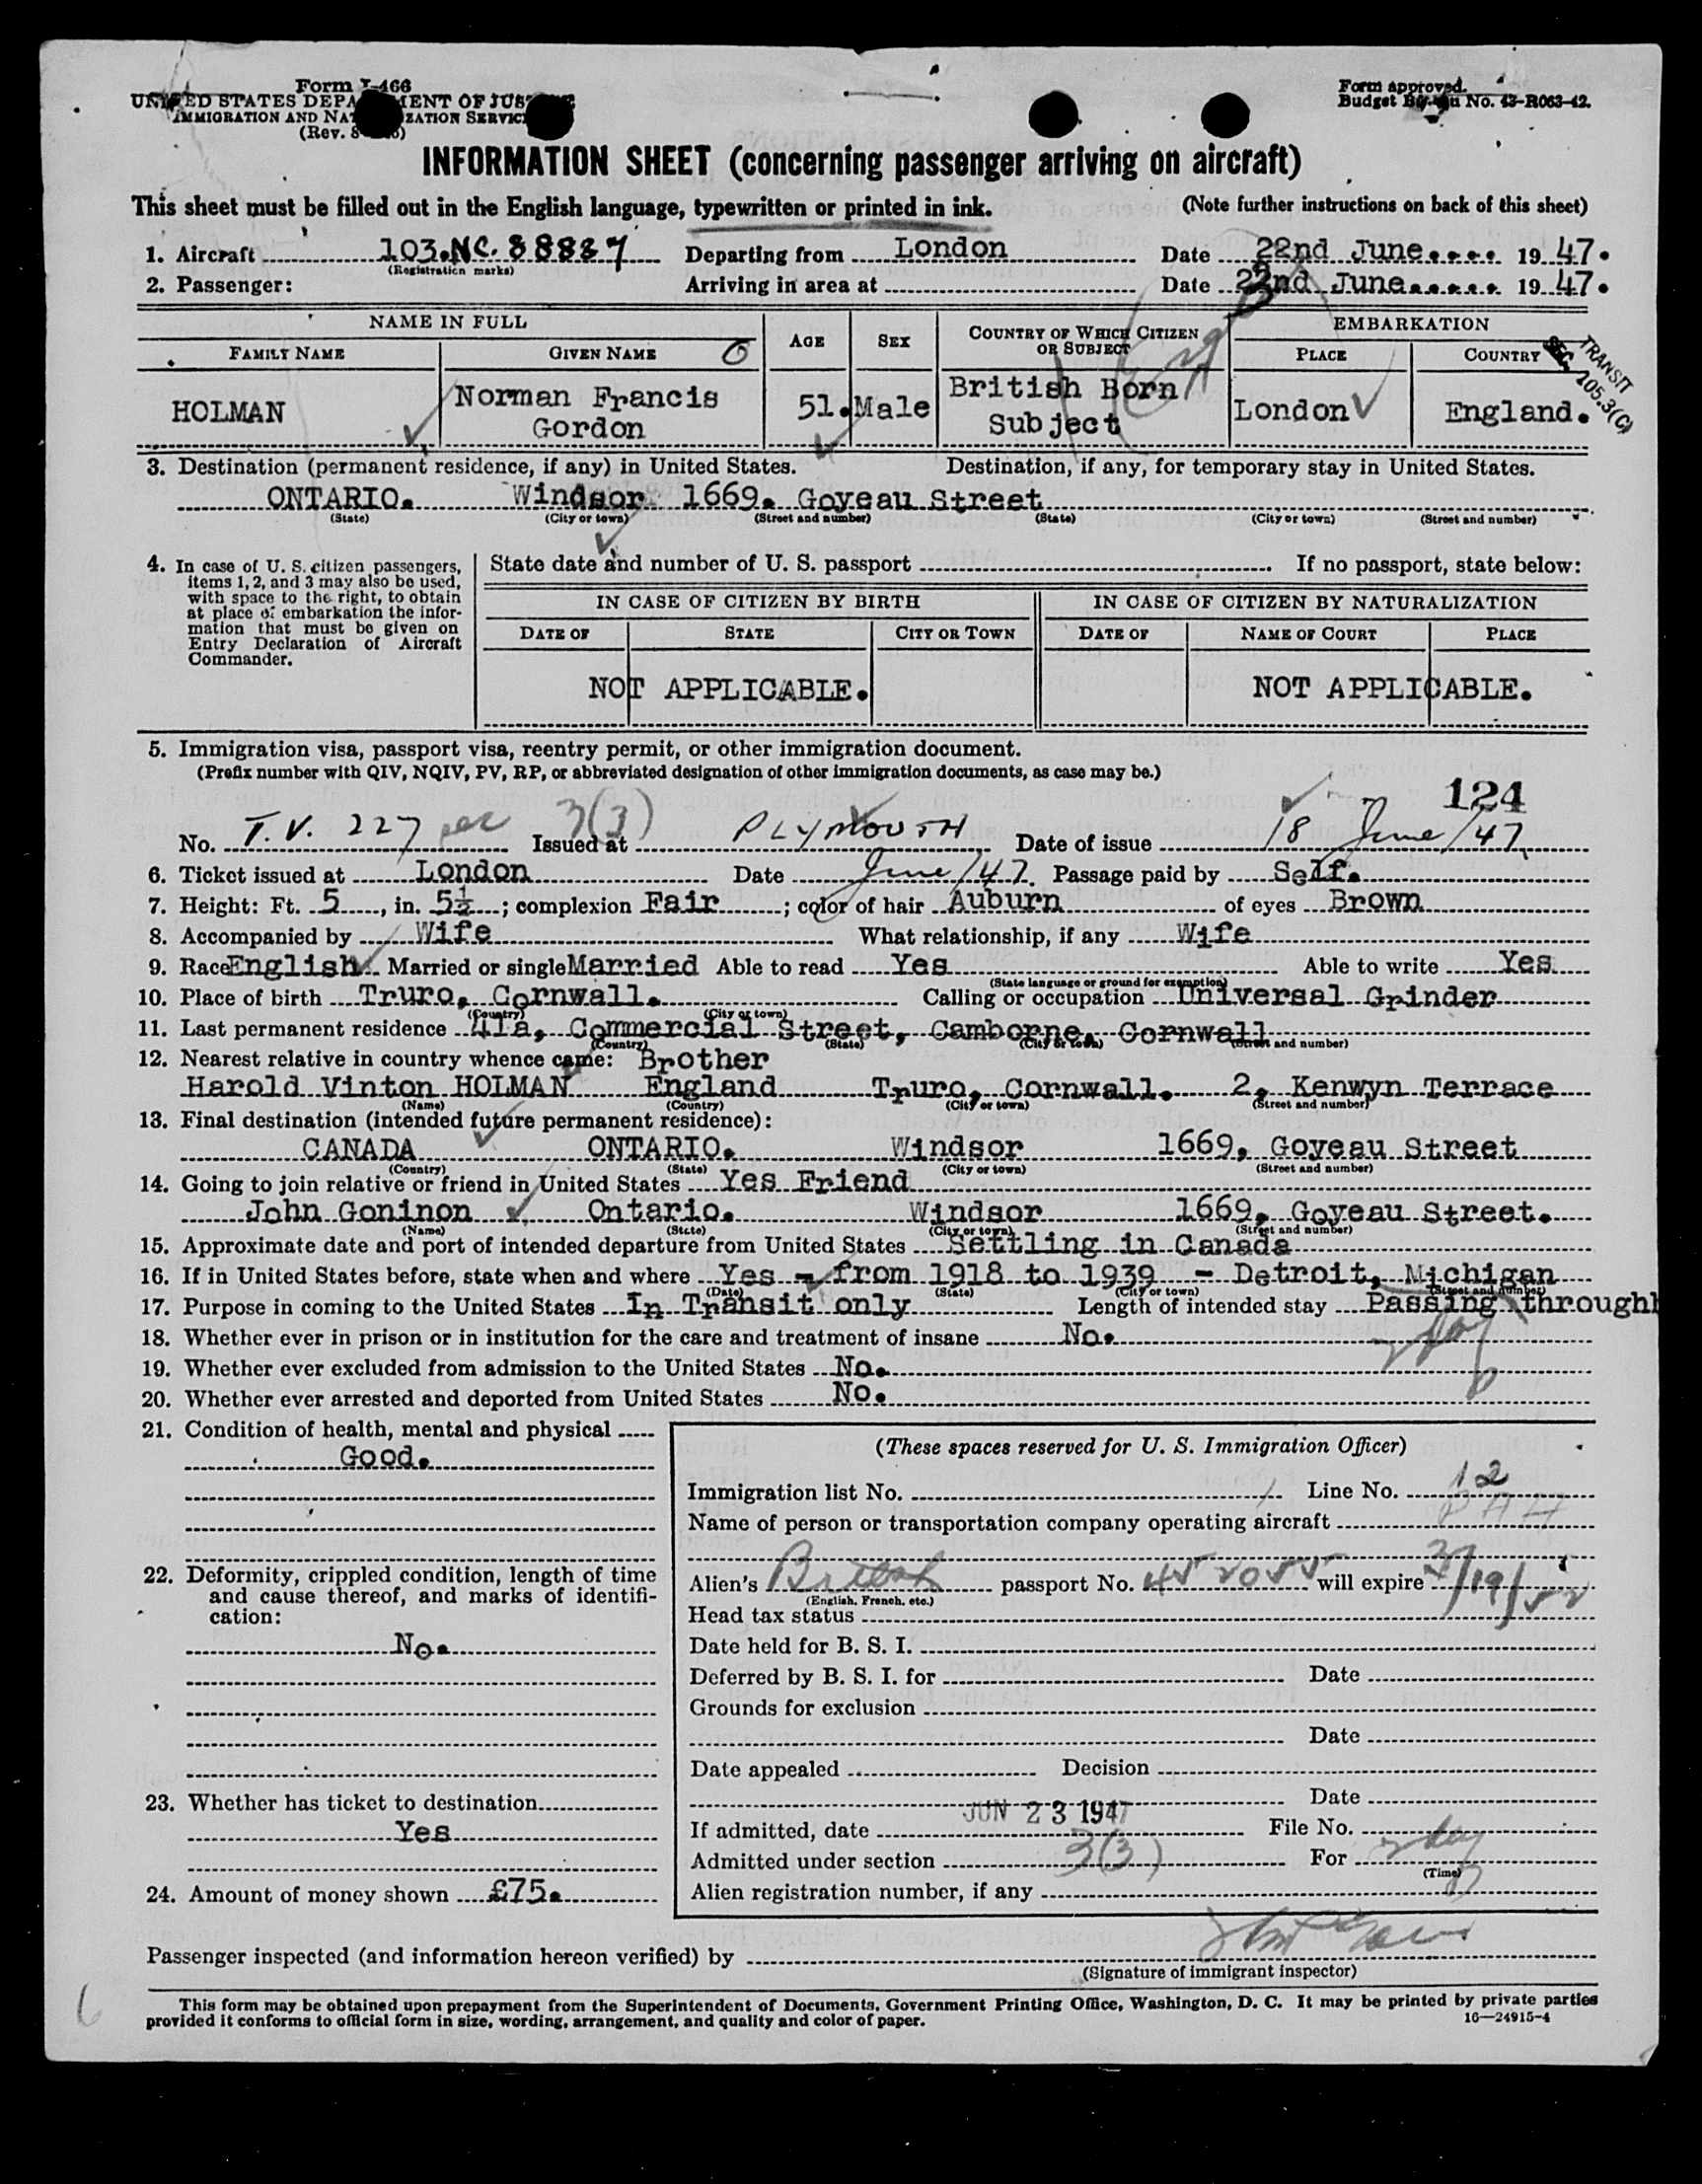 Form I-466
UNITED STATES DEPARTMENT OF JUSTICE
IMMIGRATION AND NATURALIZATION SERVICE
(Rev. 8
Form approved.
Budget Bureau No. 43-R063-42.
INFORMATION SHEET (concerning passenger arriving on aircraft)
This sheet must be filled out in the English language, typewritten or printed in ink. (Note further instructions on back of this sheet)
1. Aircraft 103. NC. 88887 Departing from London Date 22nd June.... 1947.
(Registration marks)
2. Passenger: Arriving in area at Date 22nd June..... 1947.
NAME IN FULL AGE SEX COUNTRY OF WHICH CITIZEN OR SUBJECT EMBARKATION
FAMILY NAME GIVEN NAME PLACE COUNTRY
TRANSIT
SEC. 105.3(C)
HOLMAN Norman Francis Gordon 51. Male British Born Subject London England.
3. Destination (permanent residence, if any) in United States. Destination, if any, for temporary stay in United States.
ONTARIO. Windsor 1669. Goyeau Street
(State) (City or town) (Street and number) (State) (City or town) (Street and number)
4. In case of U. S. citizen passengers,
items 1, 2, and 3 may also be used,
with space to the right, to obtain
at place of embarkation the infor-
mation that must be given on
Entry Declaration of Aircraft
Commander.
State date and number of U. S. passport If no passport, state below:
IN CASE OF CITIZEN BY BIRTH IN CASE OF CITIZEN BY NATURALIZATION
DATE OF STATE CITY OR TOWN DATE OF NAME OF COURT PLACE
NOT APPLICABLE. NOT APPLICABLE.
5. Immigration visa, passport visa, reentry permit, or other immigration document.
(Prefix number with QIV, NQIV, PV, RP, or abbreviated designation of other immigration documents, as case may be.)
124
No. T.V. 227 sec 3(3) Issued at PLYMOUTH Date of issue 18 June/47
6. Ticket issued at London Date June/47. Passage paid by Self.
7. Height: Ft. 5, in. 5½; complexion Fair; color of hair Auburn of eyes Brown
8. Accompanied by Wife What relationship, if any Wife
9. Race English Married or single Married Able to read Yes Able to write Yes
(State language or ground for exemption)
10. Place of birth Truro, Cornwall. Calling or occupation Universal Grinder
(Country) (City or town)
11. Last permanent residence 41a, Commercial Street, Camborne, Cornwall
(Country) (State) (City or town) (Street and number)
12. Nearest relative in country whence came: Brother
Harold Vinton HOLMAN England Truro, Cornwall. 2, Kenwyn Terrace
(Name) (Country) (City or town) (Street and number)
13. Final destination (intended future permanent residence):
CANADA ONTARIO. Windsor 1669, Goyeau Street
(Country) (State) (City or town) (Street and number)
14. Going to join relative or friend in United States Yes Friend
John Goninon Ontario. Windsor 1669, Goyeau Street.
(Name) (State) (City or town) (Street and number)
15. Approximate date and port of intended departure from United States Settling in Canada
16. If in United States before, state when and where Yes - from 1918 to 1939 - Detroit, Michigan
(Date) (State) (City or town) (Street and number)
17. Purpose in coming to the United States In Transit only Length of intended stay Passing through
18. Whether ever in prison or in institution for the care and treatment of insane No.
19. Whether ever excluded from admission to the United States No.
20. Whether ever arrested and deported from United States No.
21. Condition of health, mental and physical
Good.
22. Deformity, crippled condition, length of time
and cause thereof, and marks of identifi-
cation:
No.
23. Whether has ticket to destination
Yes
24. Amount of money shown £75.
(These spaces reserved for U. S. Immigration Officer)
Immigration list No. 1 Line No. 12
Name of person or transportation company operating aircraft PAA
Alien's British passport No. 452055 will expire 3/19/52
(English, French, etc.)
Head tax status
Date held for B. S. I.
Deferred by B. S. I. for Date
Grounds for exclusion
Date
Date appealed Decision
Date
If admitted, date JUN 23 1947 File No.
Admitted under section 3(3) For 2 day
(Time)
Alien registration number, if any
Passenger inspected (and information hereon verified) by
(Signature of immigrant inspector)
This form may be obtained upon prepayment from the Superintendent of Documents, Government Printing Office, Washington, D. C. It may be printed by private parties
provided it conforms to official form in size, wording, arrangement, and quality and color of paper.
16—24915-4